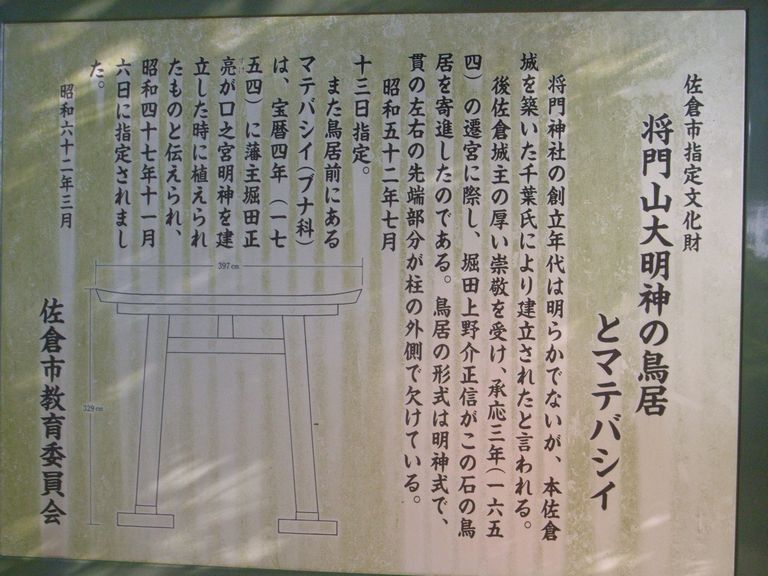 佐倉市指定文化財
将門山大明神の鳥居
とマテバシイ
将門神社の創立年代は明らかでないが、本佐倉
城を築いた千葉氏により建立されたと言われる。
後佐倉城主の厚い崇敬を受け、承応三年(一六五
四)の遷宮に際し、堀田上野介正信がこの石の鳥
居を寄進したのである。鳥居の形式は明神式で、
貫の左右の先端部分が柱の外側で欠けている。
昭和五十二年七月
十三日指定。
また鳥居前にある
マテバシイ(ブナ科)
は、宝暦四年(一七
五四)に藩主堀田正
亮が口之宮明神を建
立した時に植えられ
たものと伝えられ、
昭和四十七年十一月
六日に指定されまし
た。
昭和六十二年三月
佐倉市教育委員会
397cm
329cm